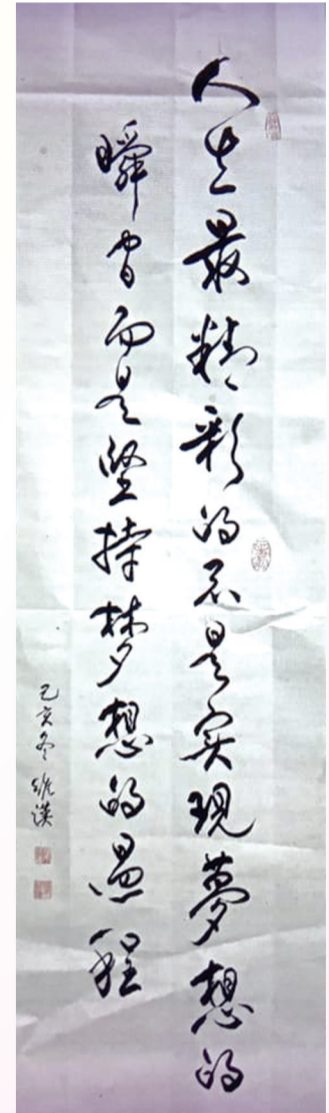 人生最精彩的不是实现夢想的
瞬间而是坚持梦想的過程
己亥冬 維漢